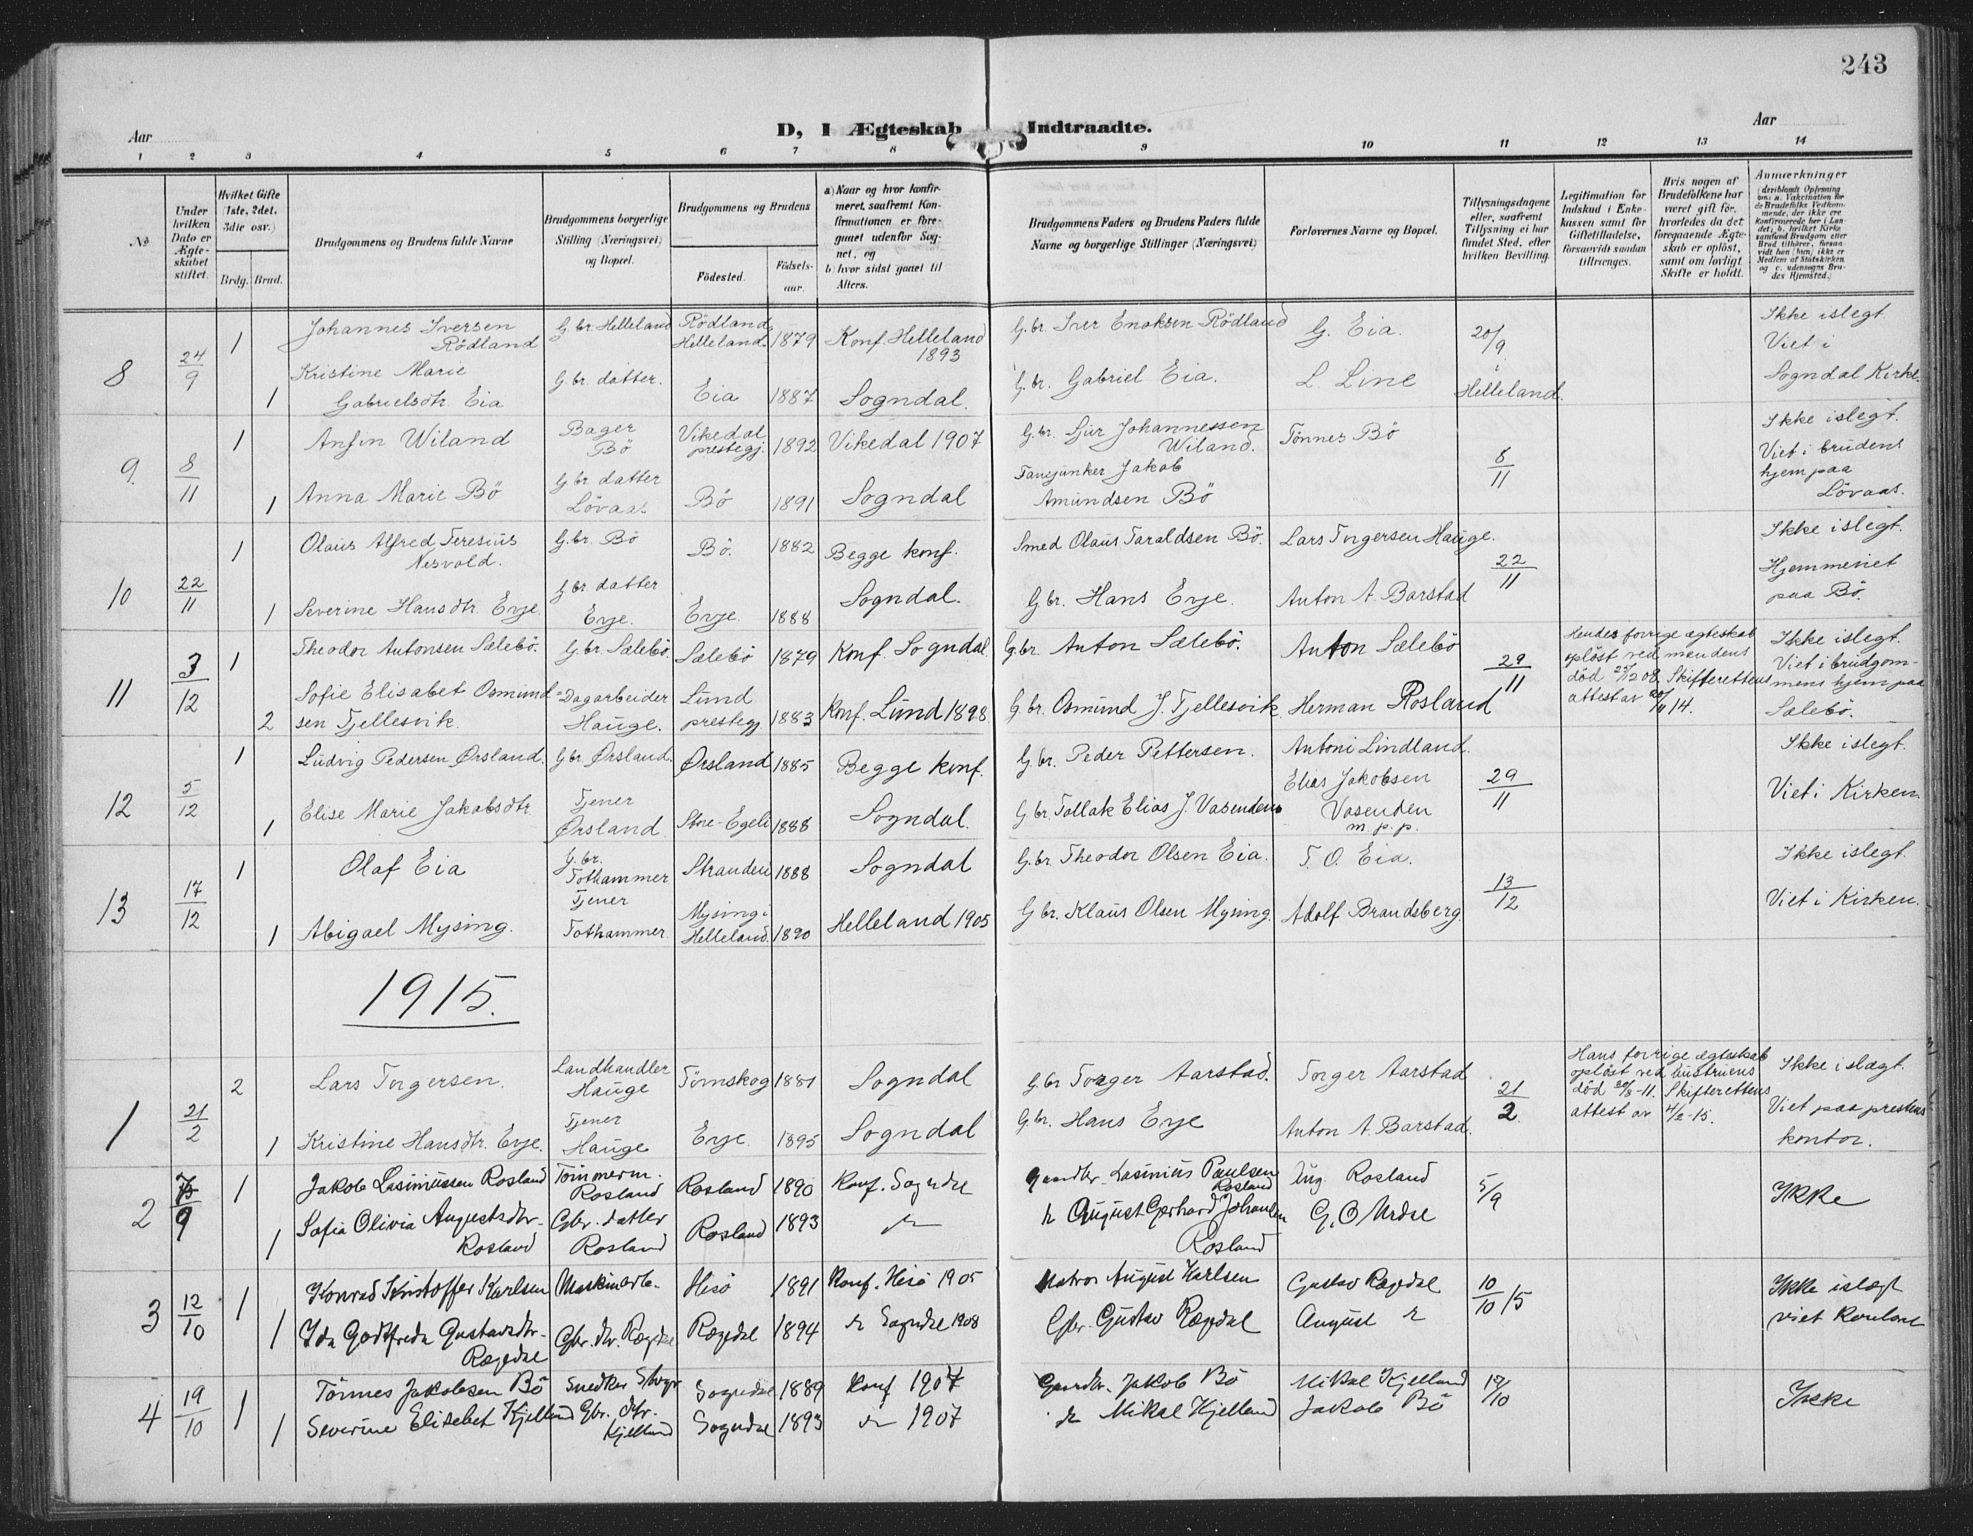 243
Aar
D, I Ægteskab Indtraadte.
Aar
1 2 3 4 5 6 7 8 9 10 11 12 13 14
No
Under hvilken Dato er Ægteskabet stiftet.
Hvilket Gifte (1ste, 2det, 3die osv.)
Brdg. Brud.
Brudgommens og Brudens fulde Navne
Brudgommens borgerlige Stilling (Næringsvei) og Bopæl.
Brudgommens og Brudens
Födested.
Födselsaar.
a) Naar og hvor konfirmeret, saafremt Konfirmationen er foregaaet udenfor Sognet, og
b) hvor sidst gaaet til Alters.
Brudgommens Faders og Brudens Faders fulde Navne og borgerlige Stillinger (Næringsvei)
Forlovernes Navne og Bopæl.
Tillysningsdagene eller, saafremt Tillysning ei har fundet Sted, efter hvilken Bevilling.
Legitimation for Indskud i Enkekassen samt for Giftetilladelse, forsaavidt saadan tiltrænges.
Hvis nogen af Brudefolkene har været gift før, hvorledes da det foregaaende Ægteskab er opløst, samt om lovligt Skifte er holdt.
Anmærkninger
8 24/9 1 Johannes Iversen Rödland G.br. Helleland Rödland Helleland 1879 Konf. Helleland 1893 G.br. Iver Enoksen Rödland G. Eia. 20/9 i Helleland Ikke islegt. Viet i Sogndal Kirke
1 Kristine Marie Gabrielsdtr. Eia G.br. datter. Eia 1887 Sogndal. G.br. Gabriel Eia. L. Line
9. 8/11 1 Anfin Wiland Bager Bö Vikedal prestegj. 1892 Vikedal 1907 G.br. Sjur Johannessen Wiland. Tönnes Bö 8/11 Ikke islegt. Viet i brudens hjem paa Lövaas.
1 Anna Marie Bö G.br datter Lövaas Bö 1891 Sogndal Fanejunker Jakob Amundsen Bö
10 22/11 1 Olaus Alfred Teresius Nesvold. G.br. Bö Bö. 1882 Begge konf. Smed Olaus Taraldsen Bö. Lars Torgersen Hauge. 22/11 Ikke islegt. Hjemmeviet paa Bö.
1 Severine Hansdtr. Erje. G.br datter Erje. Erje. 1888 Sogndal. G.br. Hans Erje. Anton A. Barstad
11 3/12 1 Theodor Antonsen Sælebö. G.br. Sælebö. Sælebö 1879 Konf. Sogndal G.br. Anton Sælebö. Anton Sælebö 29/11 Hendes forrige ægteskab oplöst ved mandens död 25/12 08. Skifterettens attest av 20/11 14. Ikke islegt. Viet i brudgommens hjem paa Sælebö.
2 Sofie Elisabet Osmundsen Tjellesvik. Dagarbeider Hauge. Lund prestegj. 1883 Konf. Lund 1898 G.br. Osmund J. Tjellesvik. Herman Rosland
12 5/12 1 Ludvig Pedersen Ørsland. G.br. Ørsland. Ørsland 1885 Begge konf. G.br. Peder Pettersen. Antoni Lindland. 29/11 Ikke islegt. Viet i Kirken.
1 Elise Marie Jakobsdtr. Tjener Ørsland Store-Egeli 1888 Sogndal. G.br. Tollak Elias J. Vasenden Elias Jakobsen Vasenden m.p.p.
13 17/12 1 Olaf Eia G.br. Tothammer Stranden 1888 Sogndal G.br. Theodor Olsen Eia. T. O. Eia. 13/12 Ikke islegt. Viet i Kirken.
1 Abigael Mysing. Tjener Tothammer Mysing i Helleland. 1890 Helleland 1905 G.br. Klaus Olsen Mysing. Adolf Brandsberg.
1915.
1 21/2 2 Lars Torgersen. Landhandler Hauge Törnskog 1881 Sogndal G.br Torger Aarstad. Torger Aarstad 21/2 Hans forrige ægteskab oplöst ved hustruens död 20/3-11. Skifterettens attest av 4/2-15. Ikke i slægt. Viet paa prestens kontor.
1 Kristine Hansdtr. Erje. Tjener Hauge Erje. 1895 Sogndal G.br. Hans Erje Anton A. Barstad.
2 1 Jakob Rasmussen Rosland Tömmerm. Rosland Rosland 1890 Konf. Sogndal Gaardbr. Rasmus Paulsen Rosland Aug. Rosland 5/9 Ikke
1 Sofia Olivia Augustsdtr. Rosland Gbr. datter Rosland Rosland 1893 August Gerhard Johansen Rosland
3 12/10 1 Konrad Kristoffer Karlsen Maskinarb. Hisö 1891 Konf. Hisö 1905 Matros August Karlsen Gustav Rægdal 10/10 15 Ikke islægt viet kontoret
1 Ida Godtfreda Gustavsdtr. Rægdal Gbr. dtr. Rægdal Rægdal 1894 Sogndal 1908 Gbr. Gustav Rægdal August
4 19/10 1 Tönnes Jakobsen Bö Snedker Sogndal 1889 Konf 1907 Gaardbr. Jakob Bö Mikal Kjelland Ikke
1 Severine Elisebet Kjelland Gbr. dtr. Kjelland Sogndal 1893 1907 Mikal Kjelland Jakob Bö